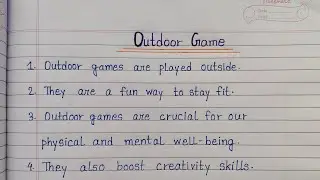 Outdoor Game
1. Outdoor games are played outside.
2. They are a fun way to stay fit.
3. Outdoor games are crucial for our
physical and mental well-being.
4. They also boost creativity skills.